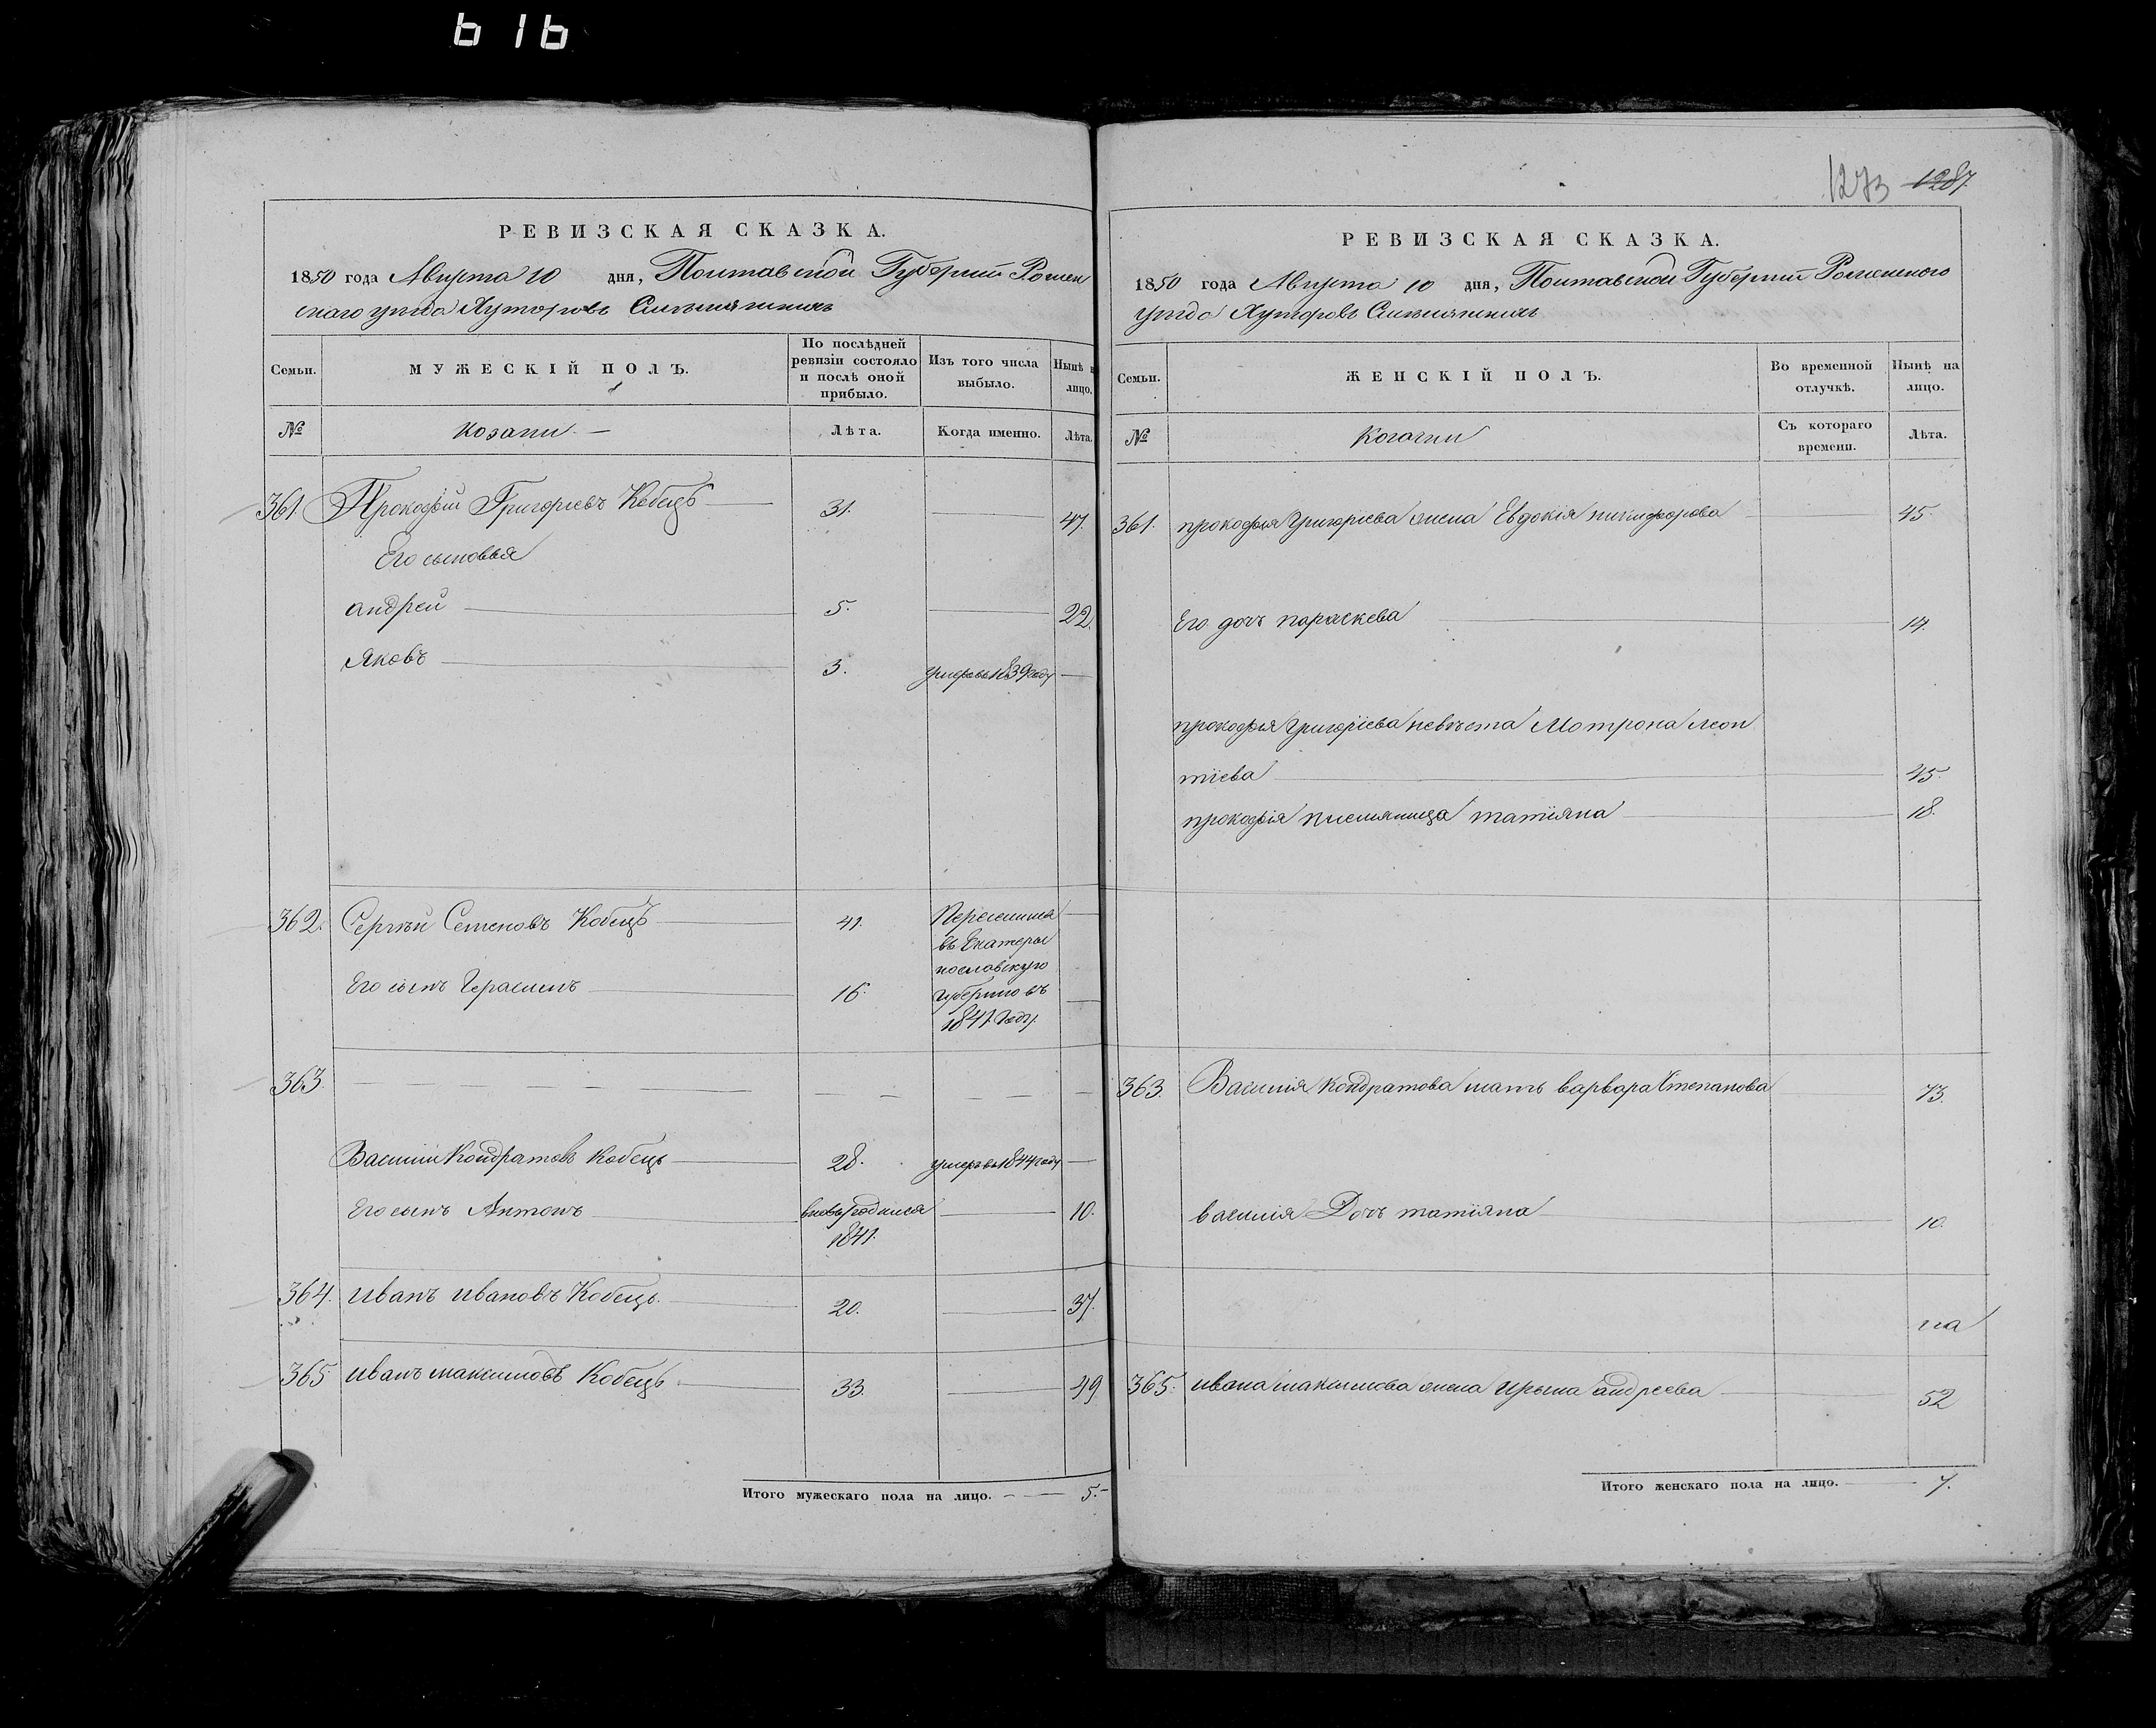 616
РЕВИЗСКАЯ СКАЗКА.
1850 года Августа 10 дня, Полтавской Губерніи Ромен
скаго уезда Хуторовъ
Семьи.
МУЖЕСКІЙ ПОЛЪ.
По послѣдней ревизіи состояло и послѣ оной прибыло.
Изъ того числа выбыло.
Нынѣ на лицо.
№
Козаки
Лѣта.
Когда именно.
Лѣта.
361. Прокофій Григорьевъ Кобецъ 31. 47.
Его сыновья
андрей 5. 22.
Яковъ 3. умеръ въ 1839 году
362. Сергѣй Семеновъ Кобецъ 41. Переселился
въ Екатери
нославскую
Его сынъ Герасимъ 16. губернію въ
1847 Году.
363.
Василій Кондратовъ Кобецъ 28. умеръ въ 1844 году
Его сынъ Антонъ вновь родился 10.
1841.
364. Иванъ Ивановъ Кобецъ. 20. 37.
365 Иванъ максимовъ Кобецъ 33. 49
Итого мужескаго пола на лицо. 5.
1273 1287.
РЕВИЗСКАЯ СКАЗКА.
1850 года Августа 10 дня, Полтавской Губерніи Роменского
уезда Хуторовъ
Семьи.
ЖЕНСКІЙ ПОЛЪ.
Во временной отлучкѣ.
Нынѣ на лицо.
№
Козачки
Съ котораго времени.
Лѣта.
361. прокофія Григоріева жена Евдокія никифорова 45.
Его дочь параскева 14.
прокофія Григоріева невѣста Мотрона леон
тіева 45.
прокофія племяница татіяна 18.
363. Василія Кондратова мать варвара Степанова 73.
василія Дочь татіяна 10.
365. ивана максимова жена Ирына андреева 52
Итого женскаго пола на лицо. 7.